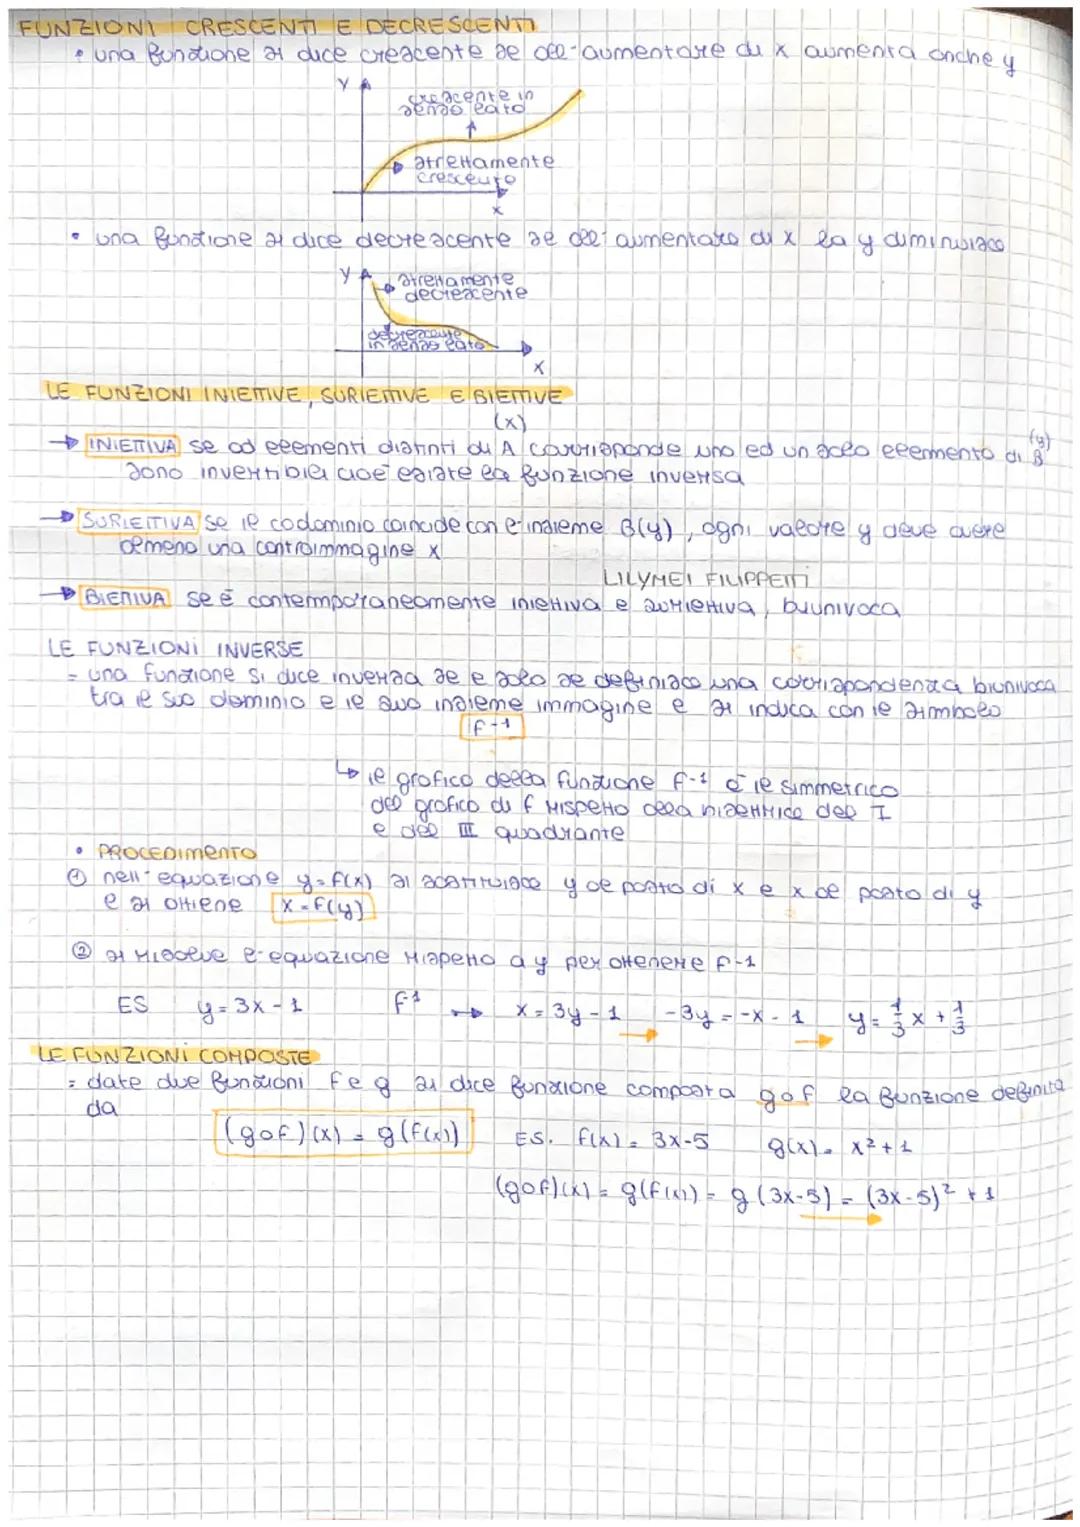 FUNZIONI CRESCENTI E DECRESCENTI
• una funzione si dice crescente se all'aumentare di x aumenta anche y
y
crescente in
senso lato
strettamente
crescente
x
• una funzione si dice decrescente se all'aumentare di x la y diminuisce
y
strettamente
decrescente
decrescente
in senso lato
x
LE FUNZIONI INIETTIVE, SURIETTIVE E BIETTIVE
(x) (y)
→ INIETTIVA se ad elementi distinti di A corrisponde uno ed un solo elemento di B
sono invertibili cioè esiste la funzione inversa
→ SURIETTIVA se il codominio coincide con l'insieme B(y), ogni valore y deve avere
almeno una controimmagine x
LILYMEI FILIPPETTI
→ BIETTIVA se è contemporaneamente iniettiva e suriettiva, biunivoca
LE FUNZIONI INVERSE
= una funzione si dice inversa se e solo se definisce una corrispondenza biunivoca
tra il suo dominio e il suo insieme immagine e si indica con il simbolo
f-1
↳ il grafico della funzione f-1 è il simmetrico
del grafico di f rispetto alla bisettrice del I
e del III quadrante
• PROCEDIMENTO
① nell'equazione y=f(x) si sostituisce y al posto di x e x al posto di y
e si ottiene x=f(y)
② si risolve l'equazione rispetto a y per ottenere f-1
ES y=3x-1 f-1 → x=3y-1 → -3y=-x-1 → y=1/3 x+1/3
LE FUNZIONI COMPOSTE
= date due funzioni f e g si dice funzione composta gof la funzione definita
da
(gof)(x)=g(f(x)) ES. f(x)=3x-5 g(x)=x²+1
(gof)(x)=g(f(x))=g(3x-5)=(3x-5)²+1